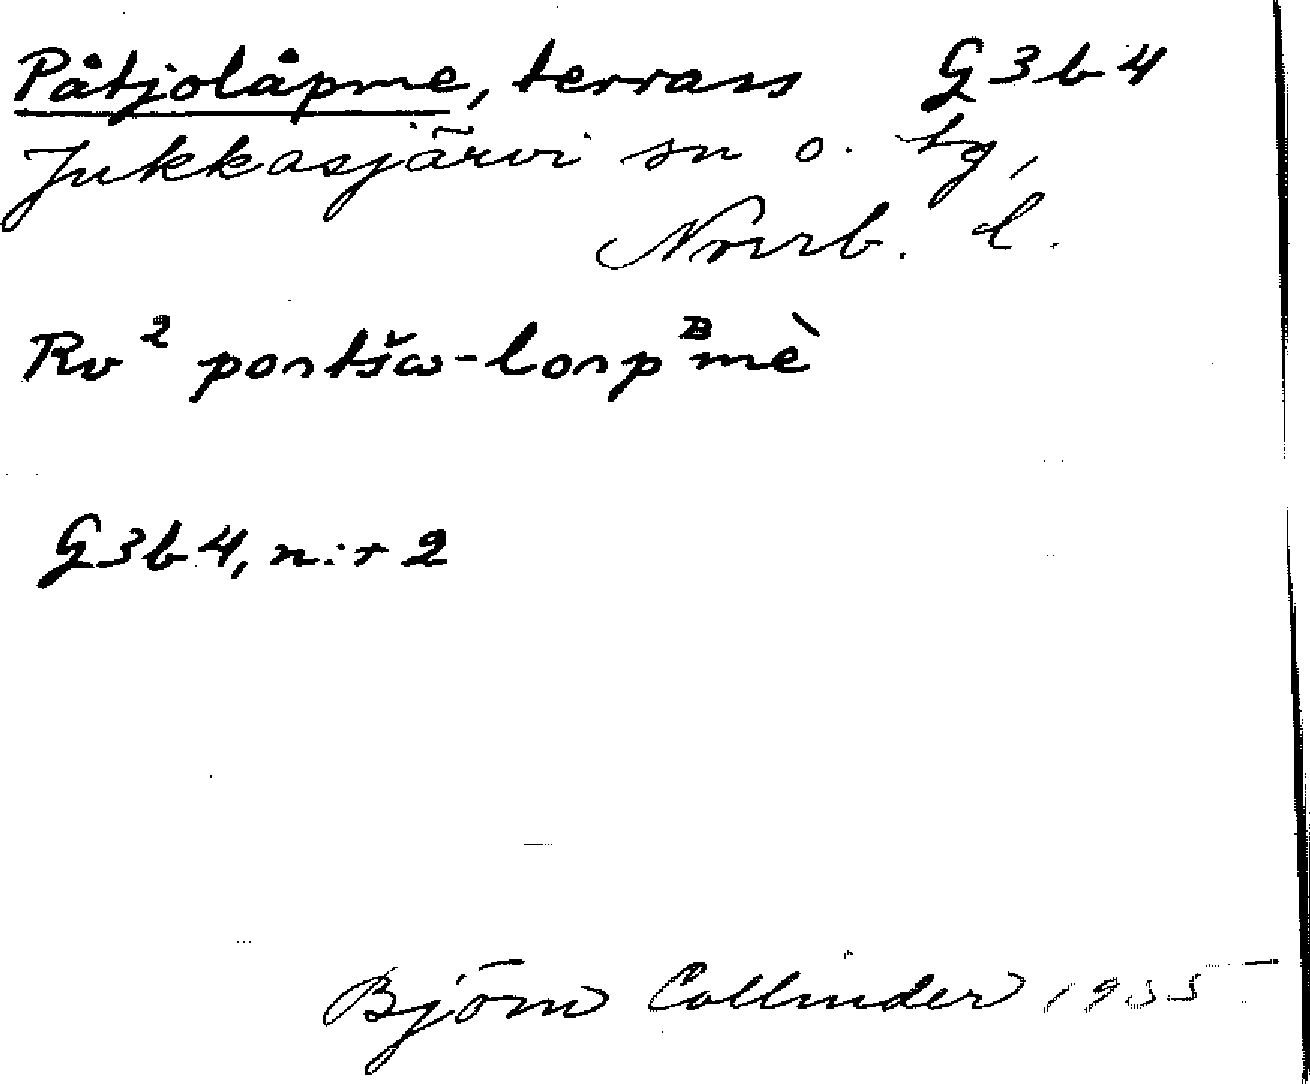 Påtjolåpme, terrass G3b4
Jukkasjärvi sn o. tg,
Norrb. l.
Rv² portšω-lorpᴮmè
G3b4, n:r 2
Björn Collinder 1935